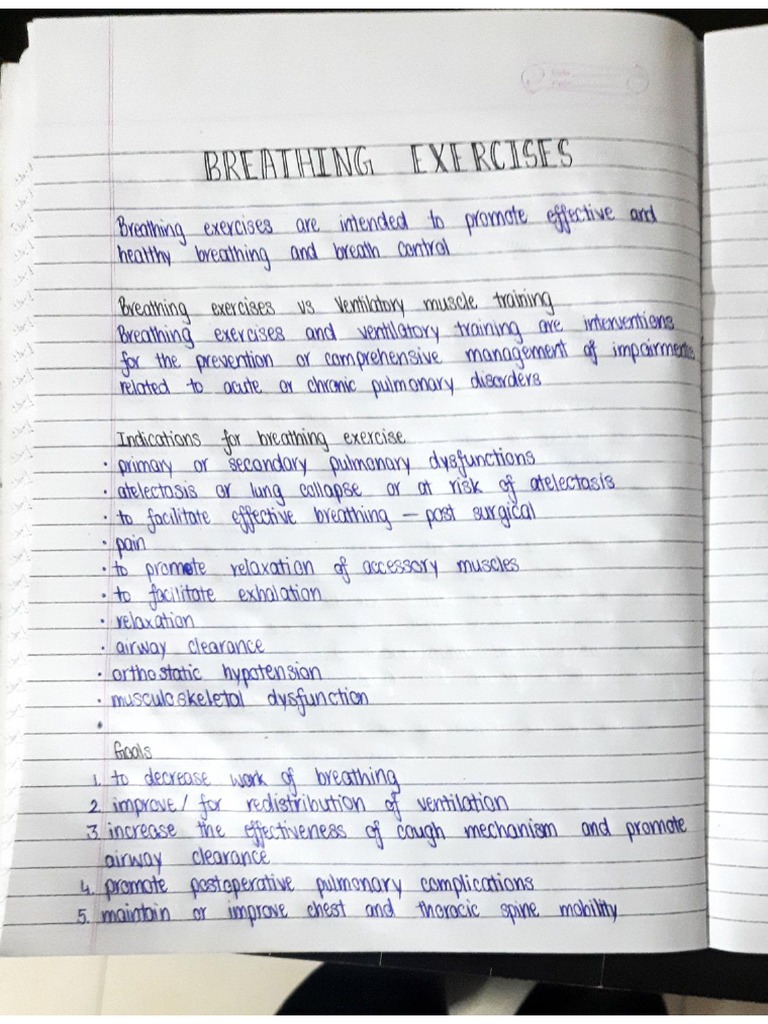 BREATHING EXERCISES
Breathing exercises are intended to promote effective and
healthy breathing and breath control
Breathing exercises vs Ventilatory muscle training
Breathing exercises and ventilatory training are interventions
for the prevention or comprehensive management of impairments
related to acute or chronic pulmonary disorders
Indications for breathing exercise
• primary or secondary pulmonary dysfunctions
• atelectasis or lung collapse or at risk of atelectasis
• to facilitate effective breathing – post surgical
• pain
• to promote relaxation of accessory muscles
• to facilitate exhalation
• relaxation
• airway clearance
• orthostatic hypotension
• musculoskeletal dysfunction
•
Goals
1. to decrease work of breathing
2. improve / for redistribution of ventilation
3. increase the effectiveness of cough mechanism and promote
airway clearance
4. promote postoperative pulmonary complications
5. maintain or improve chest and thoracic spine mobility